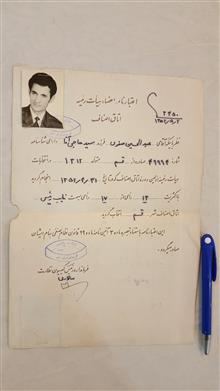 اعتبارنامه اعضاء هیأت رئیسه
اتاق اصناف
۲۲۵۰
نظر باینکه آقای عبدالحسین صفری فرزند سید حاجی آقا دارای شناسنامه
شماره ۴۹۹۹۴ صادره قم متولد ۱۳۱۲ در انتخابات
هیأت رئیسه اولین دوره اتاق اصناف که در تاریخ انجام گردید
با اکثریت ۱۳ رأی از ۱۷ رأی بسمت نایب رئیس
اتاق اصناف شهر قم انتخاب گردید
این اعتبارنامه باستناد تبصره ماده قانون نظام صنفی بنام ایشان
صادر میگردد.
فرماندار و رئیس کمیسیون نظارت